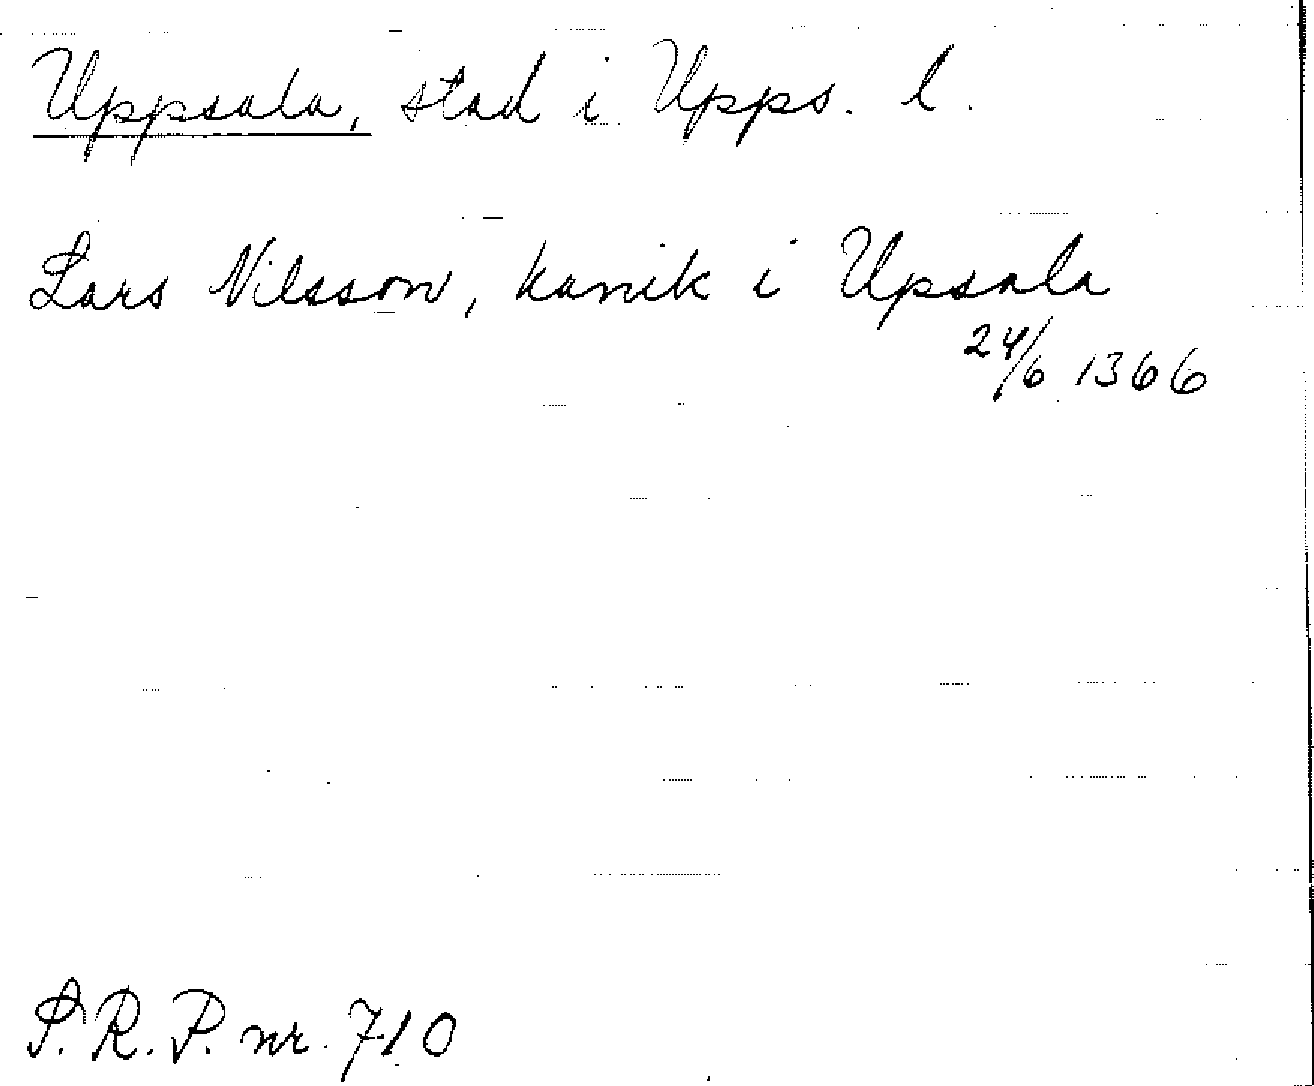 Uppsala, stad i Upps. l.
Lars Nilsson, kanik i Upsala
24/6 1366
S.R.P. nr. 710